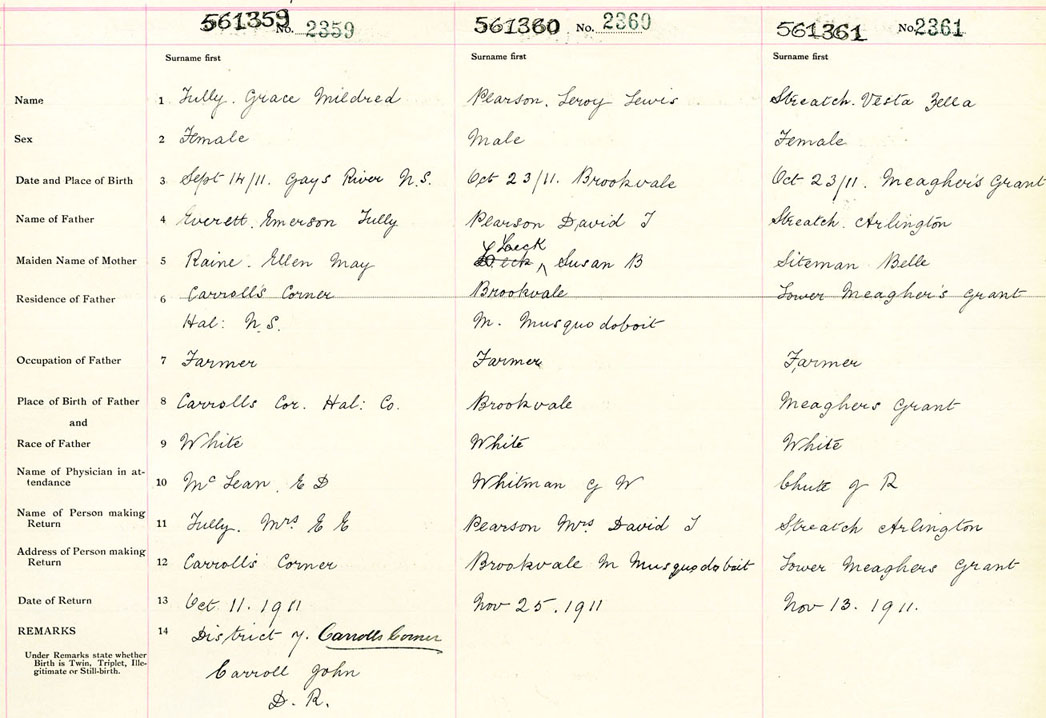 561359 No. 2359 561360 No. 2360 561361 No. 2361
Surname first Surname first Surname first
Name 1 Tully. Grace Mildred Pearson. Leroy Lewis Streatch. Vesta Zella
Sex 2 Female Male Female
Date and Place of Birth 3 Sept 14/11. Gays River N.S. Oct 23/11. Brookvale Oct 23/11. Meagher's Grant
Name of Father 4 Everett. Emerson Tully Pearson David T Streatch. Arlington
Maiden Name of Mother 5 Raine. Ellen May Susan B Siteman Belle
Residence of Father 6 Carroll's Corner Brookvale Lower Meagher's Grant
Hal: N.S. M. Musquodoboit
Occupation of Father 7 Farmer Farmer Farmer
Place of Birth of Father 8 Carrolls Cor. Hal: Co. Brookvale Meaghers Grant
and
Race of Father 9 White White White
Name of Physician in at-
tendance 10 McLean. E D Whitman G W Chute J R
Name of Person making
Return 11 Tully. Mrs E E Pearson Mrs David T Streatch Arlington
Address of Person making
Return 12 Carroll's Corner Brookvale M Musquodoboit Lower Meaghers Grant
Date of Return 13 Oct 11. 1911 Nov 25. 1911 Nov 13. 1911.
REMARKS 14 District 7. Carrolls Corner
Under Remarks state whether
Birth is Twin, Triplet, Ille-
gitimate or Still-birth.
Carroll John
D. R.